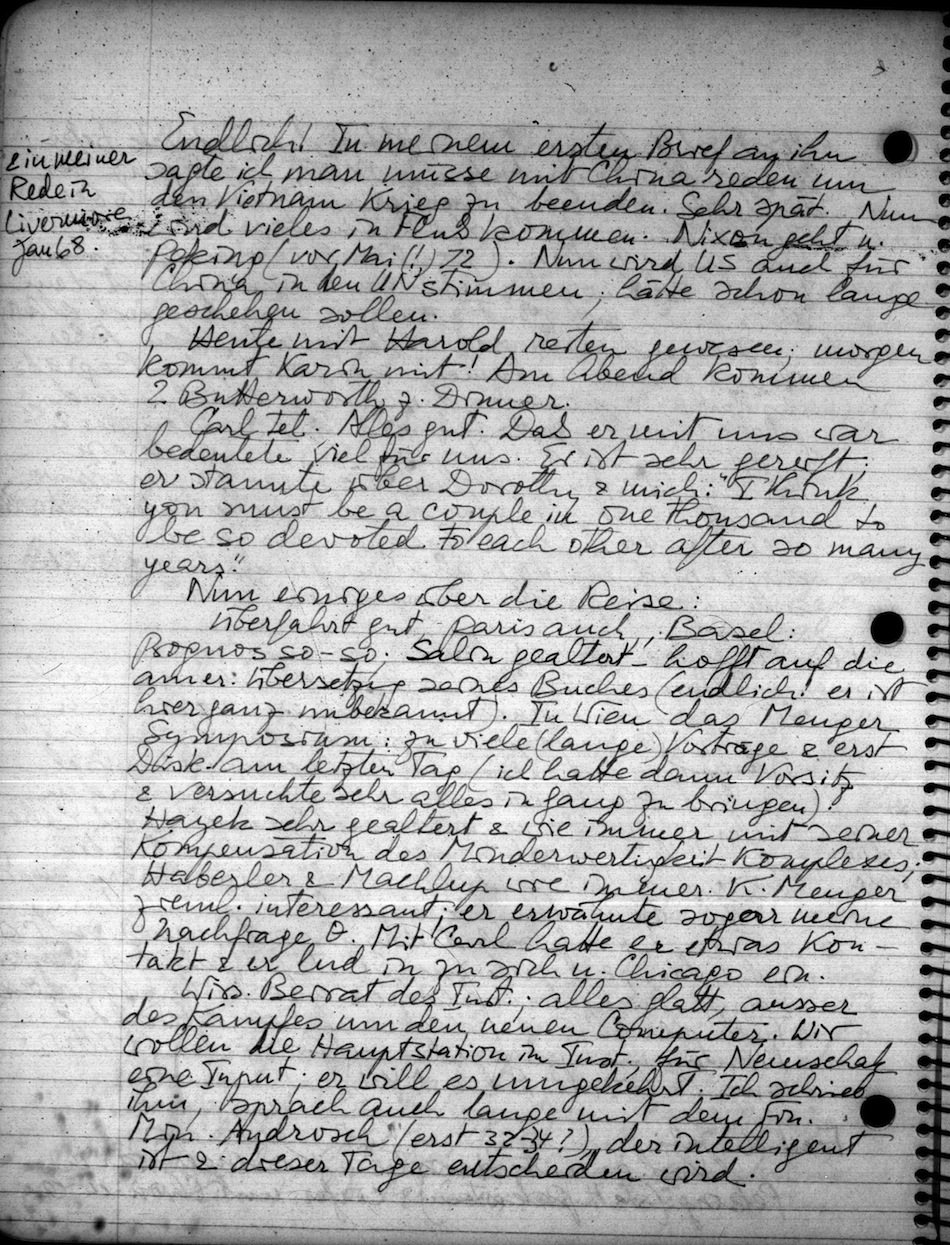 Endlich! In meinem ersten Brief an ihn
sagte ich man müsse mit China reden um
den Vietnam Krieg zu beenden. Sehr spät. Nun
wird vieles in Fluß kommen. Nixon geht n.
Peking (vor Mai (!) 72). Nun wird US auch für
China in den UN stimmen; hätte schon lange
geschehen sollen.
& in meiner
Rede in
Livermore
Jan 68.
Heute mit Harold reiten gewesen; morgen
kommt Karin mit! Am Abend kommen
2 Butterworth z. Dinner.
Carl tel. Alles gut. Daß er mit uns war
bedeutete viel für uns. Er ist sehr gereift;
er staunte über Dorothy & mich: "I think
you must be a couple in one thousand to
be so devoted to each other after so many
years."
Nun einiges über die Reise:
Überfahrt gut – Paris auch, Basel:
so-so. Salin gealtert – hofft auf die
amer. Übersetzg seines Buches (endlich! er ist
hier ganz unbekannt). In Wien das Menger
Symposium: zu viele (lange) Vorträge & erst
Disk. am letzten Tag (ich hatte dann Vorsitz
& versuchte sehr alles in gang zu bringen)!
Hayek sehr gealtert & wie immer mit seiner
Kompensation des Minderwertigkeit Komplexes;
Haberler & Machlup wie immer. K. Menger
zieml. interessant; er erwähnte sogar meine
Nachfrage θ. Mit Carl hatte er etwas Kon-
takt & er lud in zu sich n. Chicago ein.
Wiss. Beirat des Inst.: alles glatt, ausser
des Kampfes um den neuen Computer. Wir
wollen die Hauptstation im Inst, für
eine Input; er will es umgekehrt. Ich schrieb
ihm, sprach auch lange mit dem Fin.
Min. Androsch (erst 32–34?), der intelligent
ist & dieser Tage entscheiden wird.